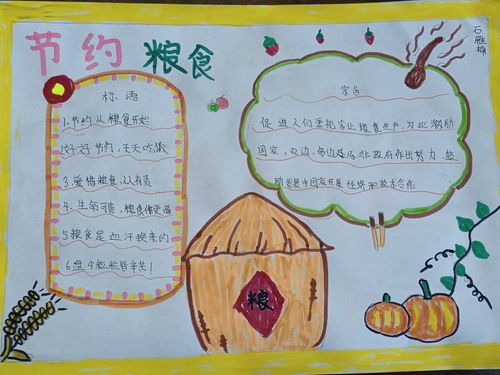 节约粮食
石雁楠
标语
1.节约从粮食开始
2.好好节约,天天吃饭
3.爱惜粮食,从有责
4.生命可贵,粮食作更
5粮食是血汗换来的
6盘中粒粒皆辛苦!
宗旨
促进人们重视农业粮食生产,为此激励
国家,双边,多边及及非政府作出努力,鼓
励发展中国家开展经济和技术合作
粮